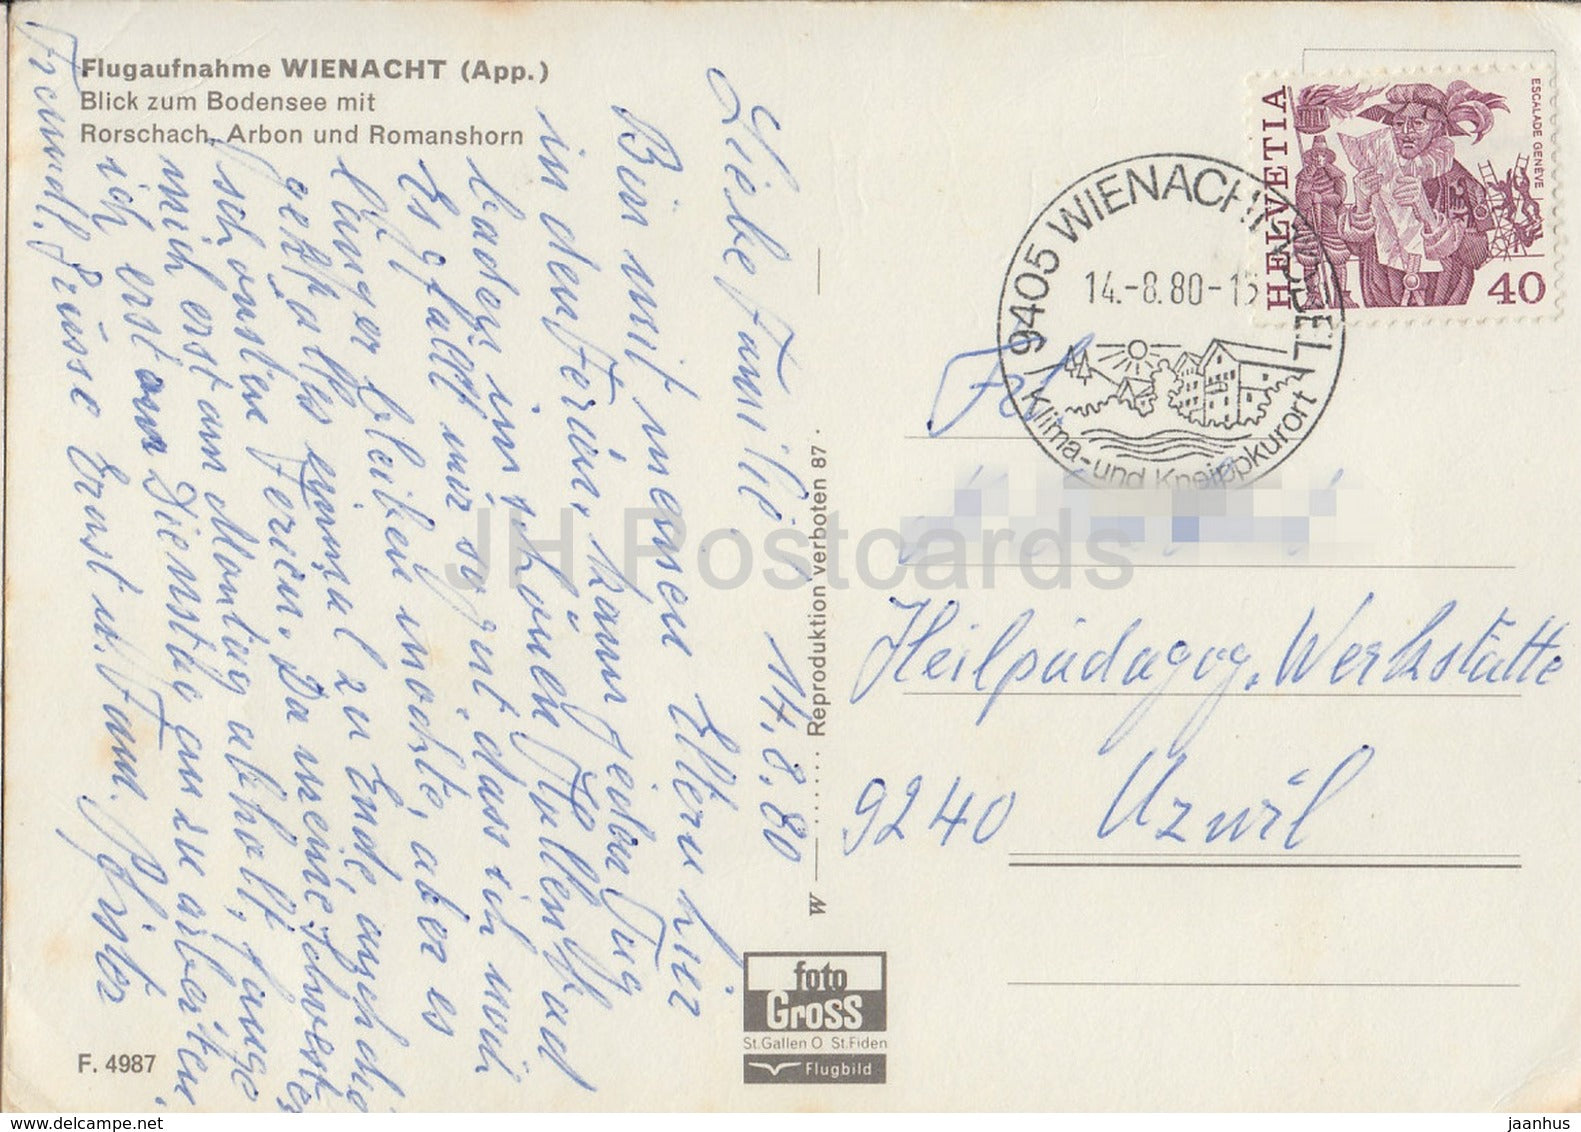 Flugaufnahme WIENACHT (App.)
Blick zum Bodensee mit
Rorschach, Arbon und Romanshorn
Liebe Familie 14.8.80
Bin mit meinen Eltern hier
in den Ferien, kann jeden Tag
baden im schönen Hallenbad
Es gfallt mir so gut, dass ich noch
länger bleiben möchte, aber es
geht alles einmal zu Ende, auch die
schönsten Ferien. Da meine Schwester
mich erst am Montag abholt, fange
ich erst am Dienstag an zu arbeiten.
Freundl. Grüsse Ernst u. Fam.
W ...... Reproduktion verboten 87.
HELVETIA
ESCALADE GENÈVE
40
9405 WIENACHT-TOBEL
14.-8.80-15
Klima- und Kneippkurort
Heilpädagog. Werkstätte
9240 Uzwil
JH Postcards
foto
Gross
St.Gallen O St.Fiden
Flugbild
F. 4987
www.delcampe.net
jaanhus